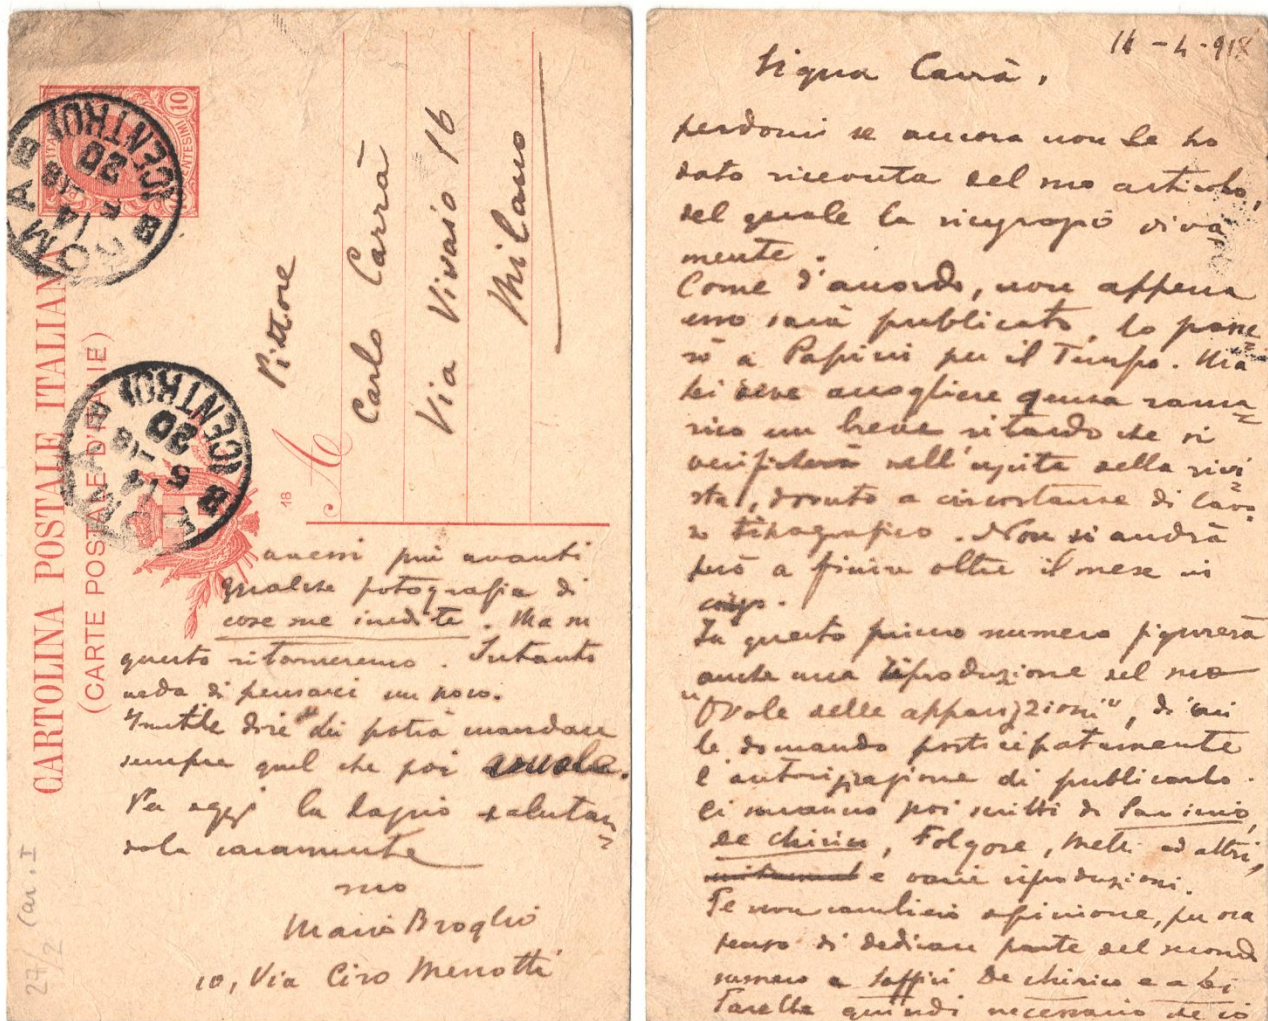 CARTOLINA POSTALE ITALIANA
(CARTE POSTALE D'ITALIE)
CENTESIMI 10
ROMA (CENTRO)
14 5 18 20
ROMA (CENTRO)
14 5 18 20
18
A
Pittore
Carlo Carrà
Via Vivaio 16
Milano
avessi più avanti
qualche fotografia di
cose sue inedite. Ma su
questo ritorneremo. Intanto
veda di pensarci un poco.
Inutile dire Lei potrà mandare
sempre quel che poi
Per oggi la lascio salutan=
dola caramente
suo
Mario Broglio
10, Via Ciro Menotti
27/2 Car. I
14-4-918
Signor Carrà,
perdoni se ancora non Le ho
dato ricevuta del suo articolo,
del quale la ringrazio viva
mente.
Come d'accordo, non appena
esso sarà publicato, lo passe=
rò a Papini per il Tempo. Ma
Lei deve accogliere senza ramma=
rico un breve ritardo che si
verificherà nell'uscita della rivi=
sta, dovuto a circostanze di lavo=
ro tipografico. Non si andrà
però a finire oltre il mese in
corso.
In questo primo numero figurerà
anche una riproduzione del suo
"Ovale delle apparizioni", di cui
le domando posticipatamente
l'autorizzazione di publicarlo.
Ci saranno poi scritti di Savinio,
De Chirico, Folgore, Melli ed altri,
e varie riproduzioni.
Se non cambierò opinione, per ora
penso di dedicare parte del secondo
numero a Soffici De Chirico e a Lei
Sarebbe quindi necessario che io